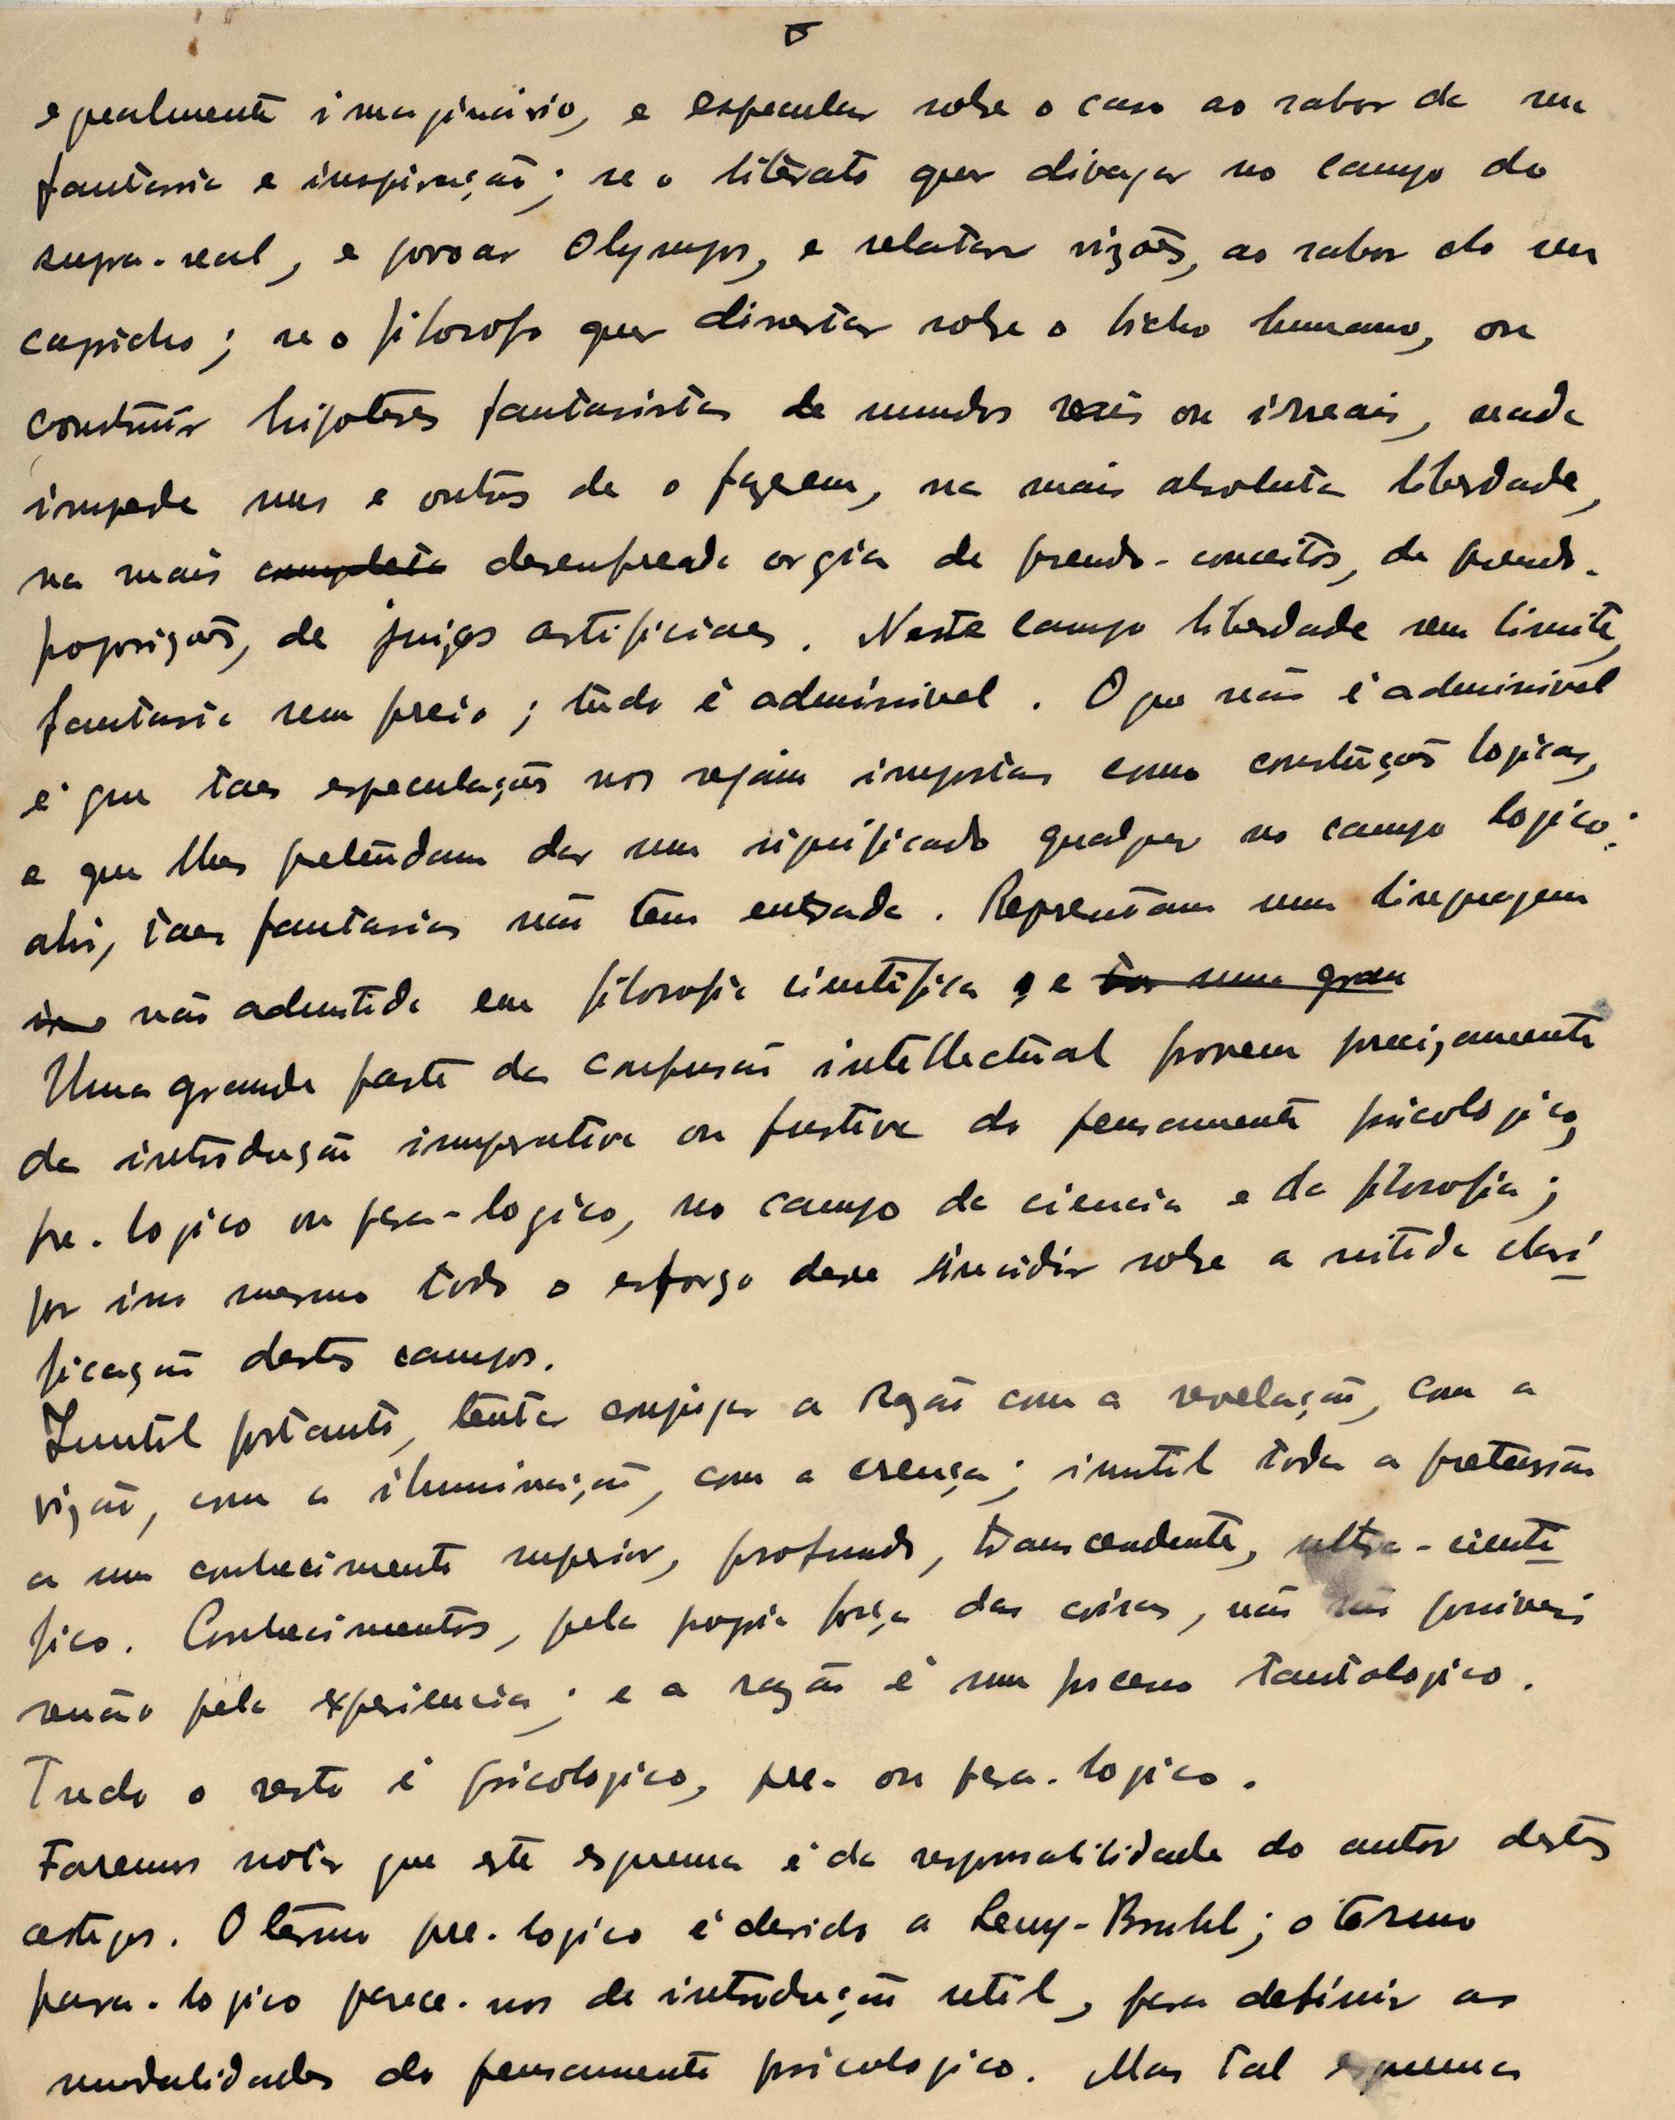 5
egualmente imaginario, e especular sobre o caso ao sabor da sua
fantasia e inspiração; se o literato quer divagar no campo do
supra-real, e povoar Olympos, e relatar vizões, ao sabor do seu
capricho; se o filosofo quer dissertar sobre o bicho humano, ou
construir hipoteses fantasistas de mundos reais ou irreais, nada
impede uns e outros de o fazerem, na mais absoluta liberdade,
na mais completa desenfreada orgia de pseudo-conceitos, de pseudo-
proposições, de juizos artificiaes. Neste campo liberdade sem limite,
fantasia sem freio; tudo é admissivel. O que não é admissivel
é que taes especulações nos sejam impostas como construções logicas,
e que lhes pretendam dar um significado qualquer no campo logico;
ahi, taes fantasias não tem entrada. Representam uma linguagem
não admitida em filosofia cientifica, e uma gran
Uma grande parte da confusão intellectual provem precizamente
da introdução imperativa ou furtiva do pensamento psicologico,
pre-logico ou para-logico, no campo da ciencia e da filosofia;
por isso mesmo todo o esforço deve incidir sobre a nitida clari
ficação destes campos.
Inutil portanto, tentar conjugar a Razão com a revelação, com a
vizão, com a iluminação, com a crença; inutil toda a pretensão
a um conhecimento superior, profundo, transcendente, ultra-cienti
fico. Conhecimentos, pela propria força das coisas, não são possiveis
senão pela experiencia; e a razão é um processo tautologico.
Tudo o resto é psicologico, pre- ou para-logico.
Faremos notar que este esquema é da responsabilidade do autor destes
artigos. O termo pre-logico é devido a Levy-Bruhl; o termo
para-logico parece-nos de introdução util, para definir as
modalidades do pensamento psicologico. Mas tal esquema